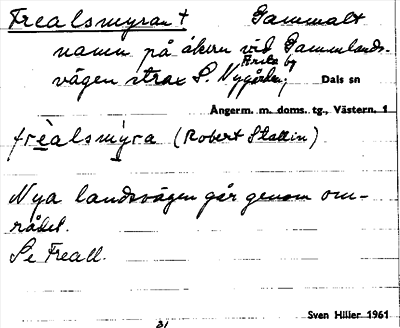 Frealsmyran † Gammalt
namn på åkern vid Gammlands-
vägen strax S. Nygården, Dals sn
Ångerm. m. doms. tg., Västern. 1
frèalsmýra (Robert Stattin)
Nya landsvägen går genom om-
rådet.
Se Freall.
Sven Hiller 1961